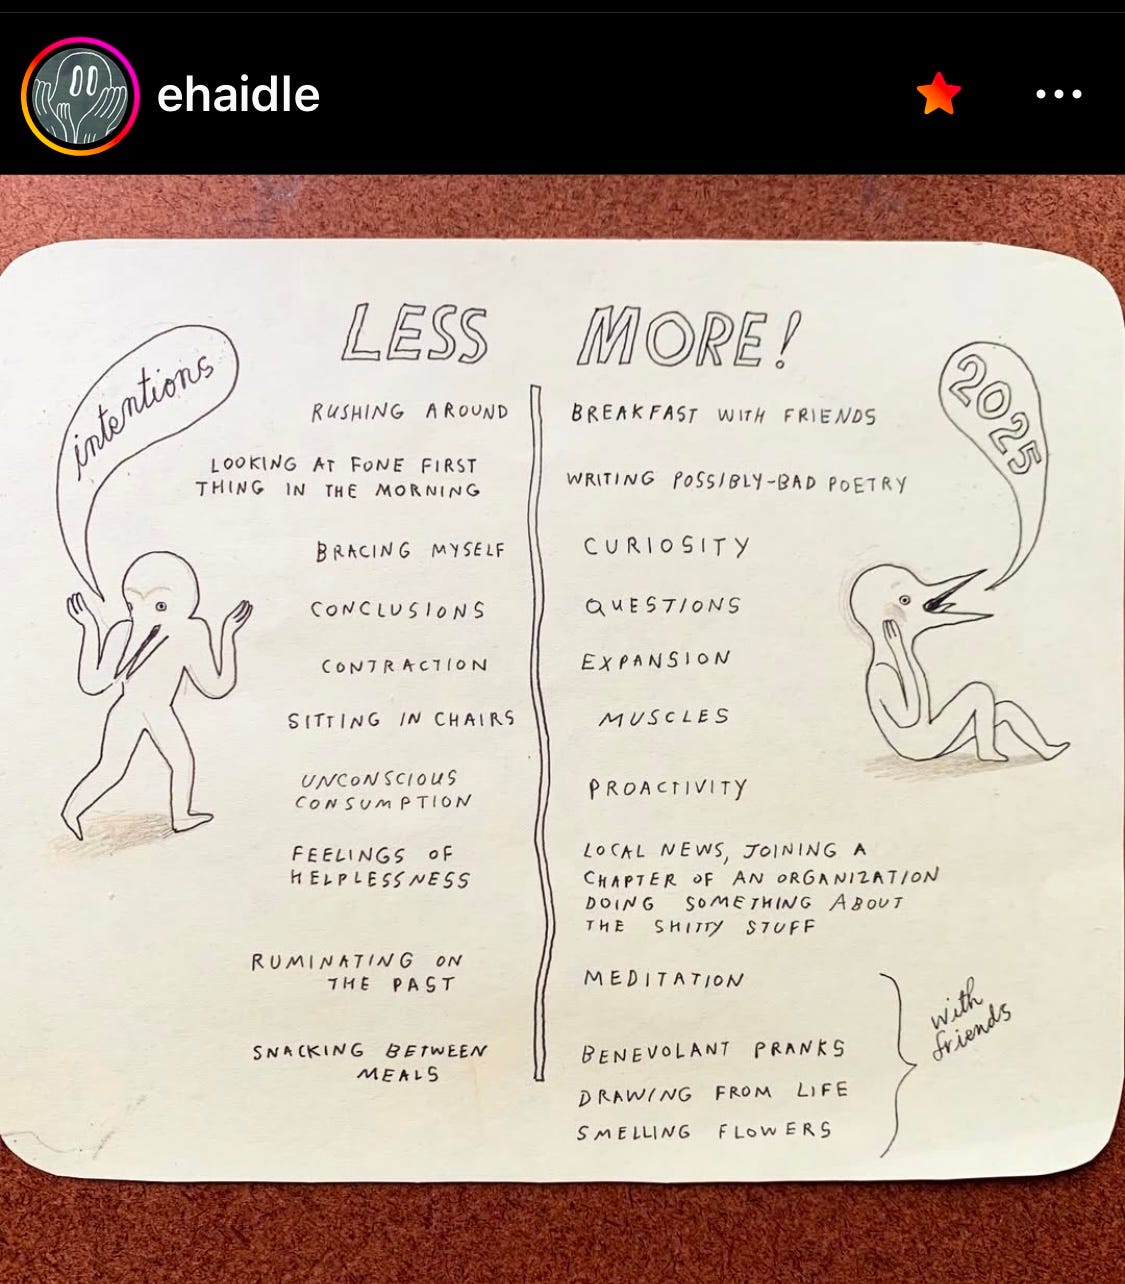 ehaidle
intentions
LESS
MORE!
2025
RUSHING AROUND
LOOKING AT FONE FIRST
THING IN THE MORNING
BRACING MYSELF
CONCLUSIONS
CONTRACTION
SITTING IN CHAIRS
UNCONSCIOUS
CONSUMPTION
FEELINGS OF
HELPLESSNESS
RUMINATING ON
THE PAST
SNACKING BETWEEN
MEALS
BREAKFAST WITH FRIENDS
WRITING POSSIBLY-BAD POETRY
CURIOSITY
QUESTIONS
EXPANSION
MUSCLES
PROACTIVITY
LOCAL NEWS, JOINING A
CHAPTER OF AN ORGANIZATION
DOING SOMETHING ABOUT
THE SHITTY STUFF
MEDITATION
BENEVOLANT PRANKS
DRAWING FROM LIFE
SMELLING FLOWERS
with
friends